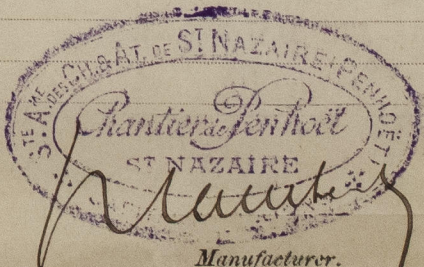 STE AME DES CH. & AT. DE ST NAZAIRE (PENHOËT)
Chantiers de Penhoët
ST NAZAIRE
Manufacturer.